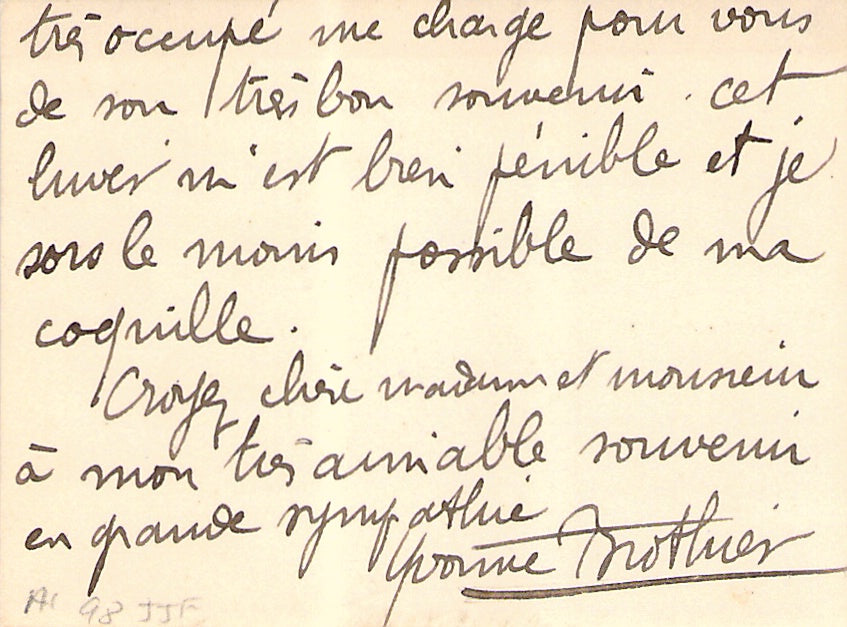 très occupé me charge pour vous
de son très bon souvenir. cet
hiver m'est bien pénible et je
sors le moins possible de ma
coquille.
Croyez chère madame et monsieur
à mon très aimable souvenir
en grande sympathie
Yvonne Brothier
98 JJF